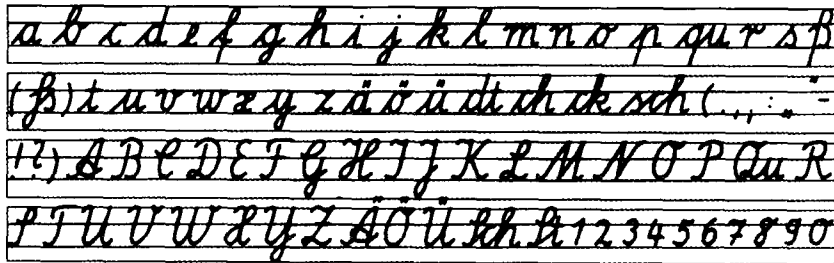 a b c d e f g h i j k l m n o p qu r s ß
(ß) t u v w x y z ä ö ü dt ch ck sch ( . , , : „ " -
! ? ) A B C D E F G H I J K L M N O P Qu R
S T U V W X Y Z Ä Ö Ü Sch St 1 2 3 4 5 6 7 8 9 0